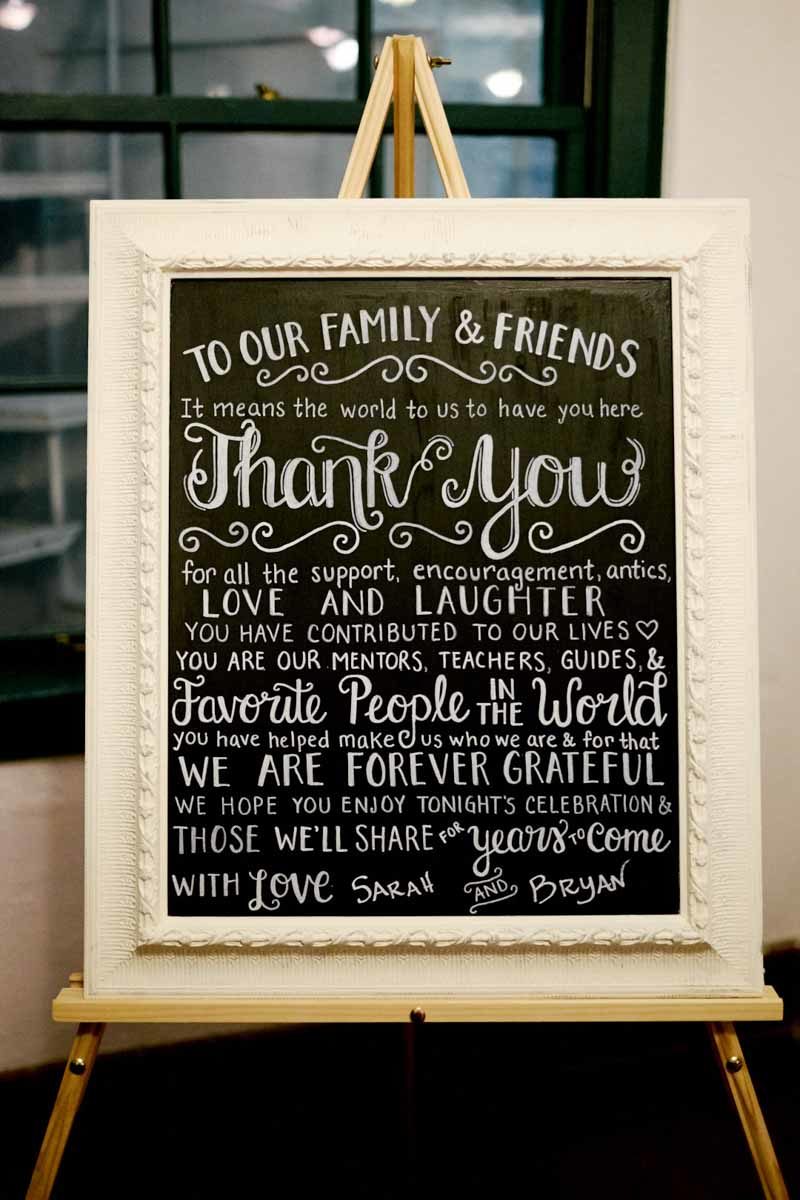 TO OUR FAMILY & FRIENDS
It means the world to us to have you here
Thank You
for all the support, encouragement, antics,
LOVE AND LAUGHTER
YOU HAVE CONTRIBUTED TO OUR LIVES ♡
YOU ARE OUR MENTORS, TEACHERS, GUIDES, &
Favorite People IN THE World
you have helped make us who we are & for that
WE ARE FOREVER GRATEFUL
WE HOPE YOU ENJOY TONIGHT'S CELEBRATION &
THOSE WE'LL SHARE FOR years TO Come
WITH Love SARAH AND BRYAN